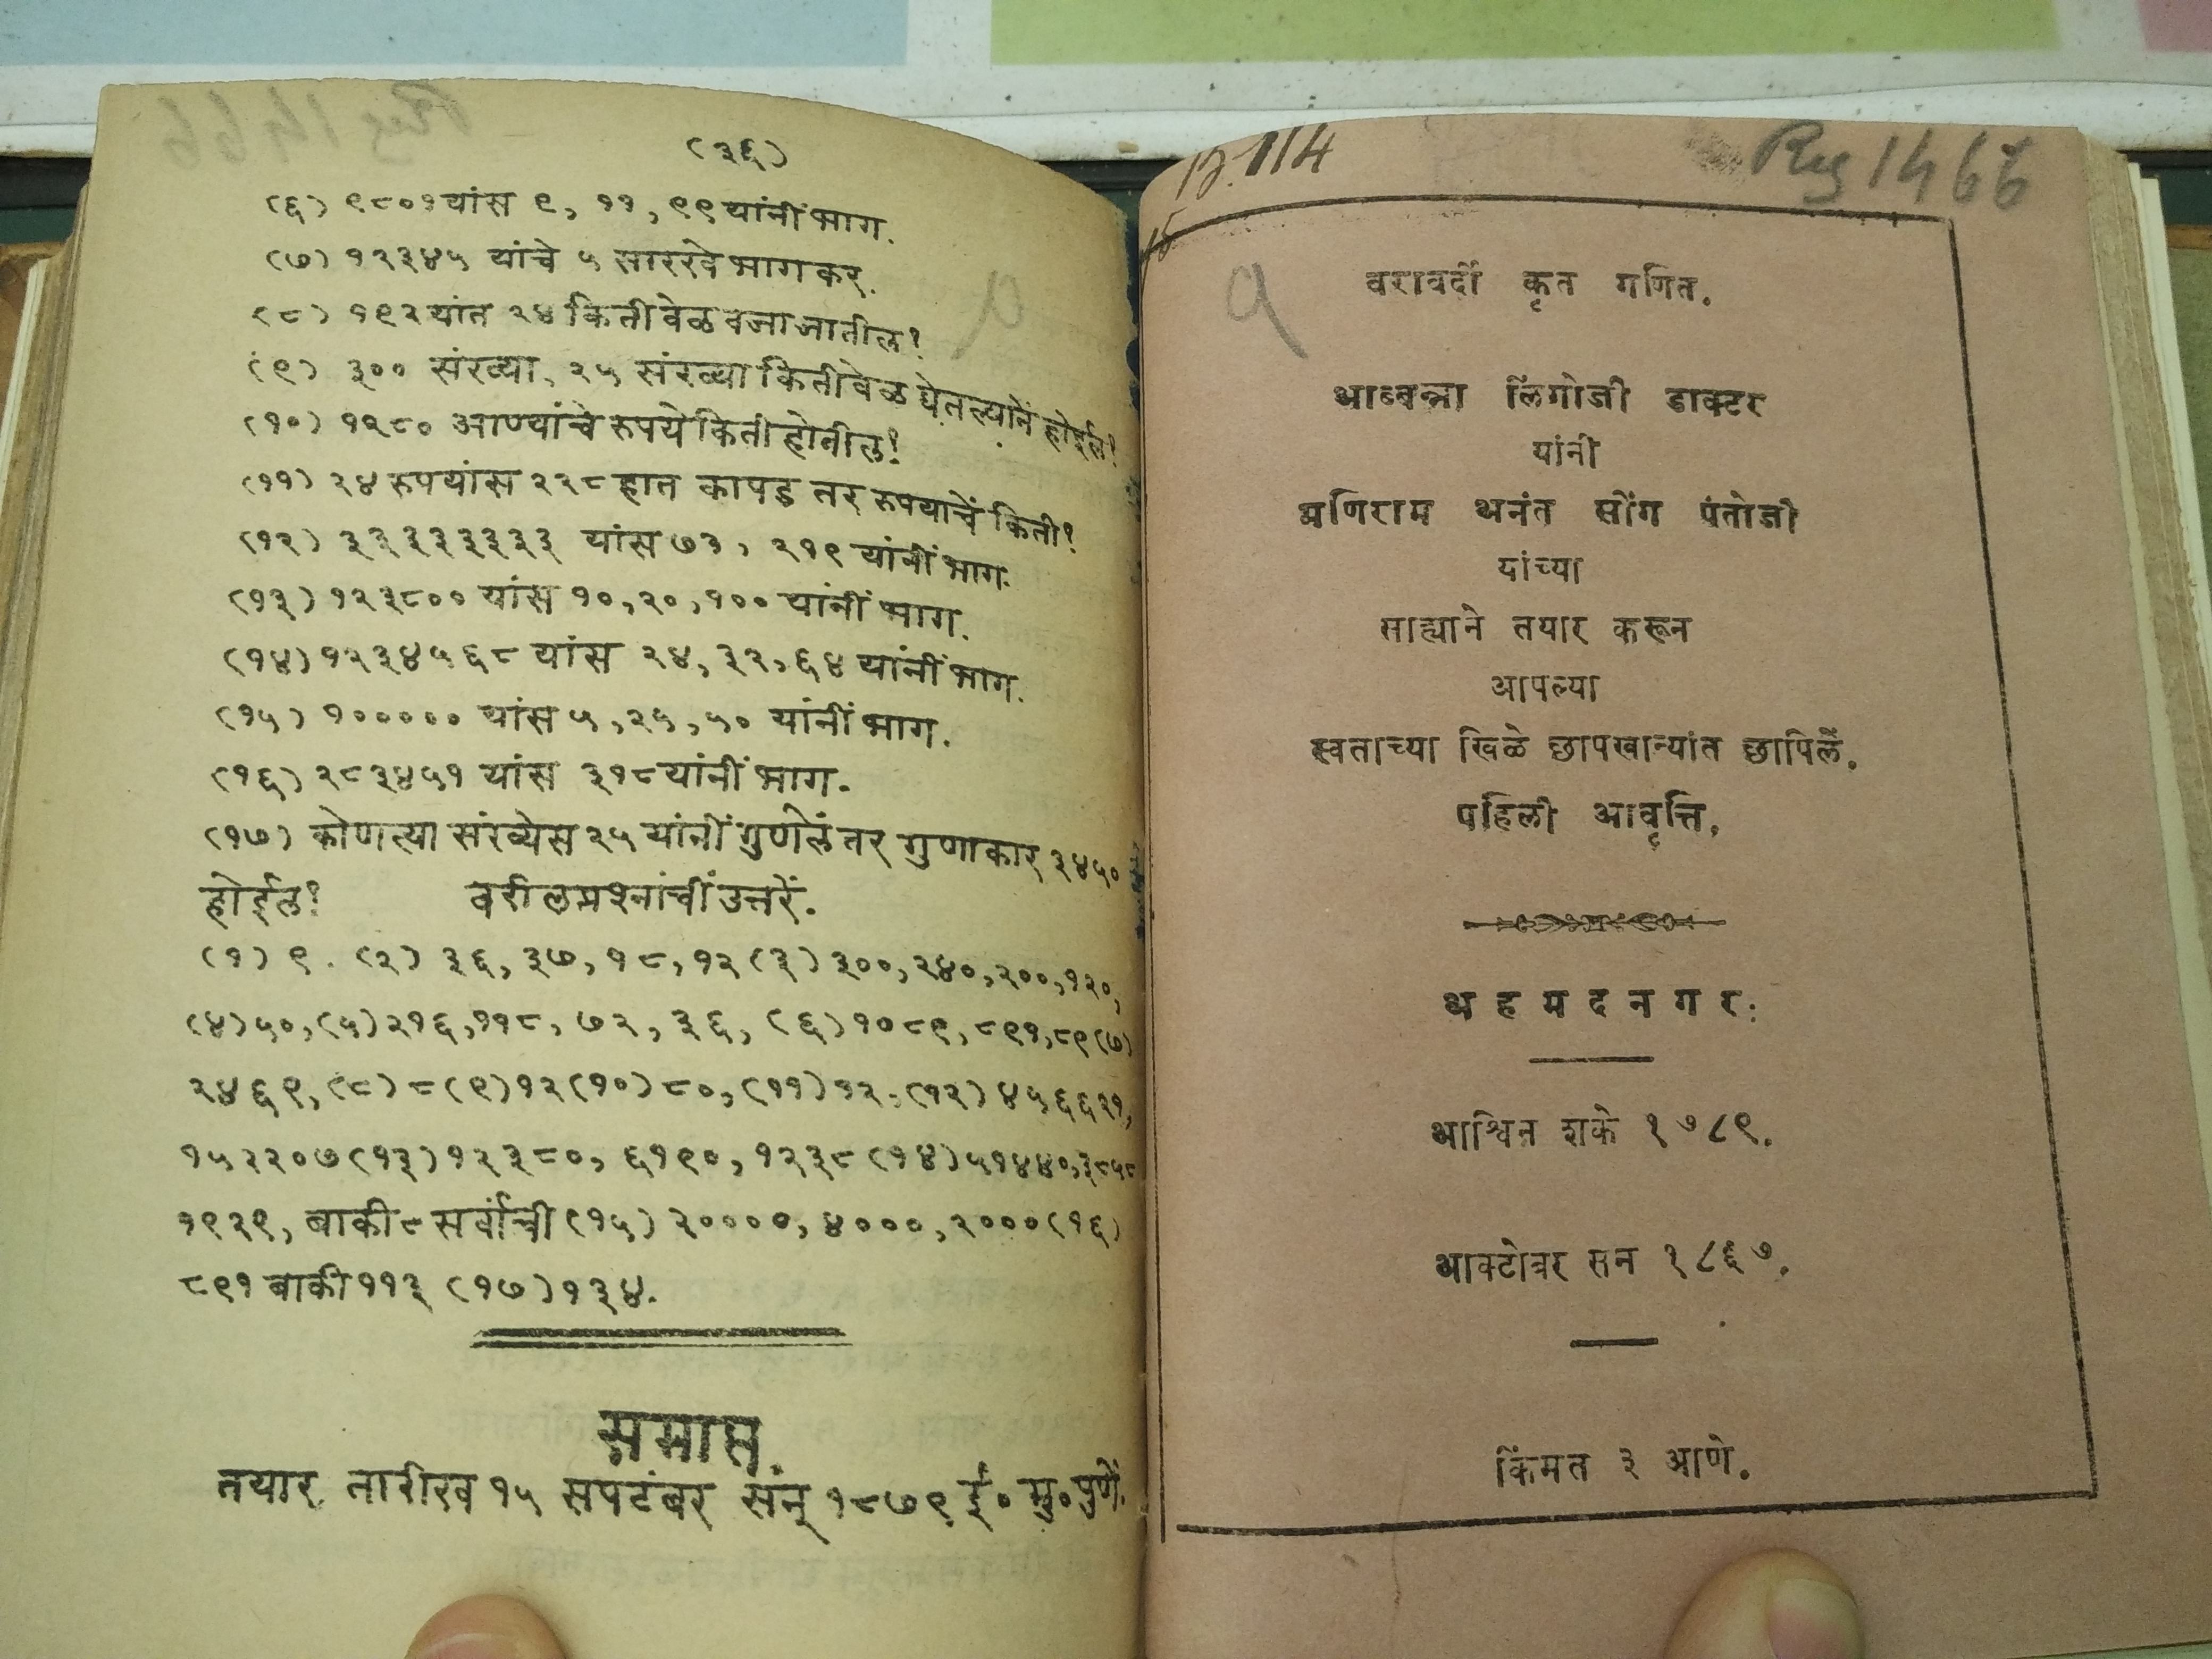 (३६)
(६) ९८०१ यांस ९, ११, ९९ यांनीं भाग.
(७) १२३४५ यांचे ५ सारखे भाग कर.
(८) १९२ यांत २४ किती वेळ वजा जातील?
(९) ३०० संख्या, २५ संख्या किती वेळ घेतल्यानें होईल?
(१०) १२८० आण्यांचे रुपये किती होतील?
(११) २४ रुपयांस २२८ हात कापड तर रुपयाचें किती?
(१२) ३३३३३३३३ यांस ७३, २१९ यांनीं भाग.
(१३) १२३८०० यांस १०, २०, १०० यांनीं भाग.
(१४) १२३४५६८ यांस २४, ३२, ६४ यांनीं भाग.
(१५) १००००० यांस ५, २५, ५० यांनीं भाग.
(१६) २८३४५१ यांस ३१८ यांनीं भाग.
(१७) कोणत्या संख्येस २५ यांनीं गुणेलें तर गुणाकार ३४५०
होईल? वरील प्रश्नांचीं उत्तरें.
(१) ९. (२) ३६, ३७, १८, १२ (३) ३००, २४०, २००, १२०,
(४) ५०, (५) २१६, ११८, ७२, ३६, (६) १०८९, ८९१, ८९ (७)
२४६९, (८) ८ (९) १२ (१०) ८०, (११) १२, (१२) ४५६६२१,
१५२२०७ (१३) १२३८०, ६१९०, १२३८ (१४) ५१४४०, ३८५८
१९२९, बाकी ८ सर्वांची (१५) २००००, ४०००, २००० (१६)
८९१ बाकी ११३ (१७) १३४.
समाप्त.
तयार तारीख १५ सपटंबर संन् १८७९ ई० मु० पुणें.
B.114
Reg 1466
१
वरावर्दी कृत गणित.
आब्बन्ना लिंगोजी डाक्टर
यांनी
मणिराम अनंत सींग पंतोजी
यांच्या
साह्याने तयार करून
आपल्या
स्वताच्या खिळे छापखान्यांत छापिलें.
पहिली आवृत्ति.
अहमदनगर:
आश्विन शके १७८९.
आक्टोबर सन १८६७.
किंमत ३ आणे.